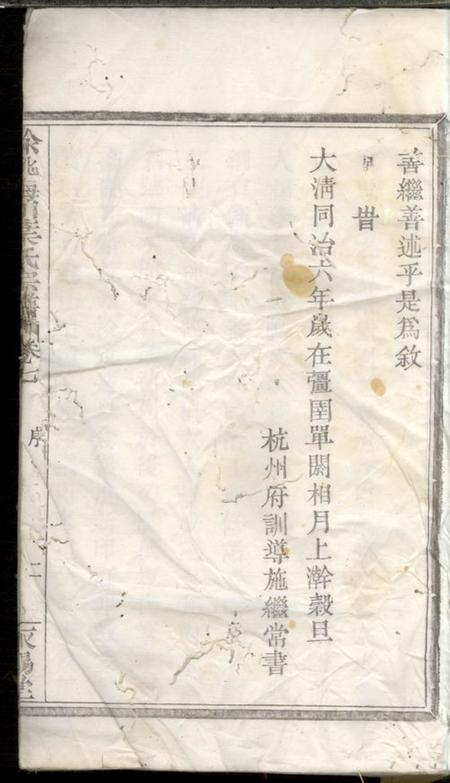 善繼善述乎是爲敘
旹
大清同治六年歲在彊圉單閼相月上澣穀旦
杭州府訓導施繼常書
葉氏宗譜
卷
序
二